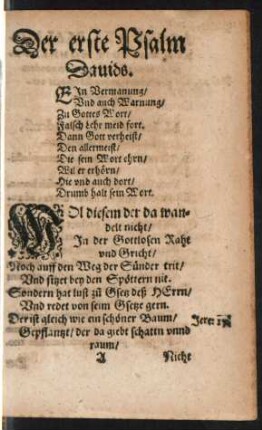 Der erste Psalm
Dauids.
EIn Vermanung/
Vnd auch Warnung/
Zu Gottes Wort/
Falsch Lehr meid fort.
Dann Gott verheist/
Den allermeist/
Die sein Wort ehrn/
Wil er erhörn/
Hie vnd auch dort/
Drumb halt sein Wort.
WOl diesem der da wan-
delt nicht/
In der Gottlosen Raht
vnd Gricht/
Noch auff den Weg der Sünder trit/
Vnd sitzet bey den Spöttern nit.
Sondern hat lust zů Gsetz deß HErrn/
Vnd redet von seim Gsetze gern.
Der ist gleich wie ein schöner Baum/
Jere: 17
Gepflantzt/ der da giebt schattn vnnd
raum/
A Nicht